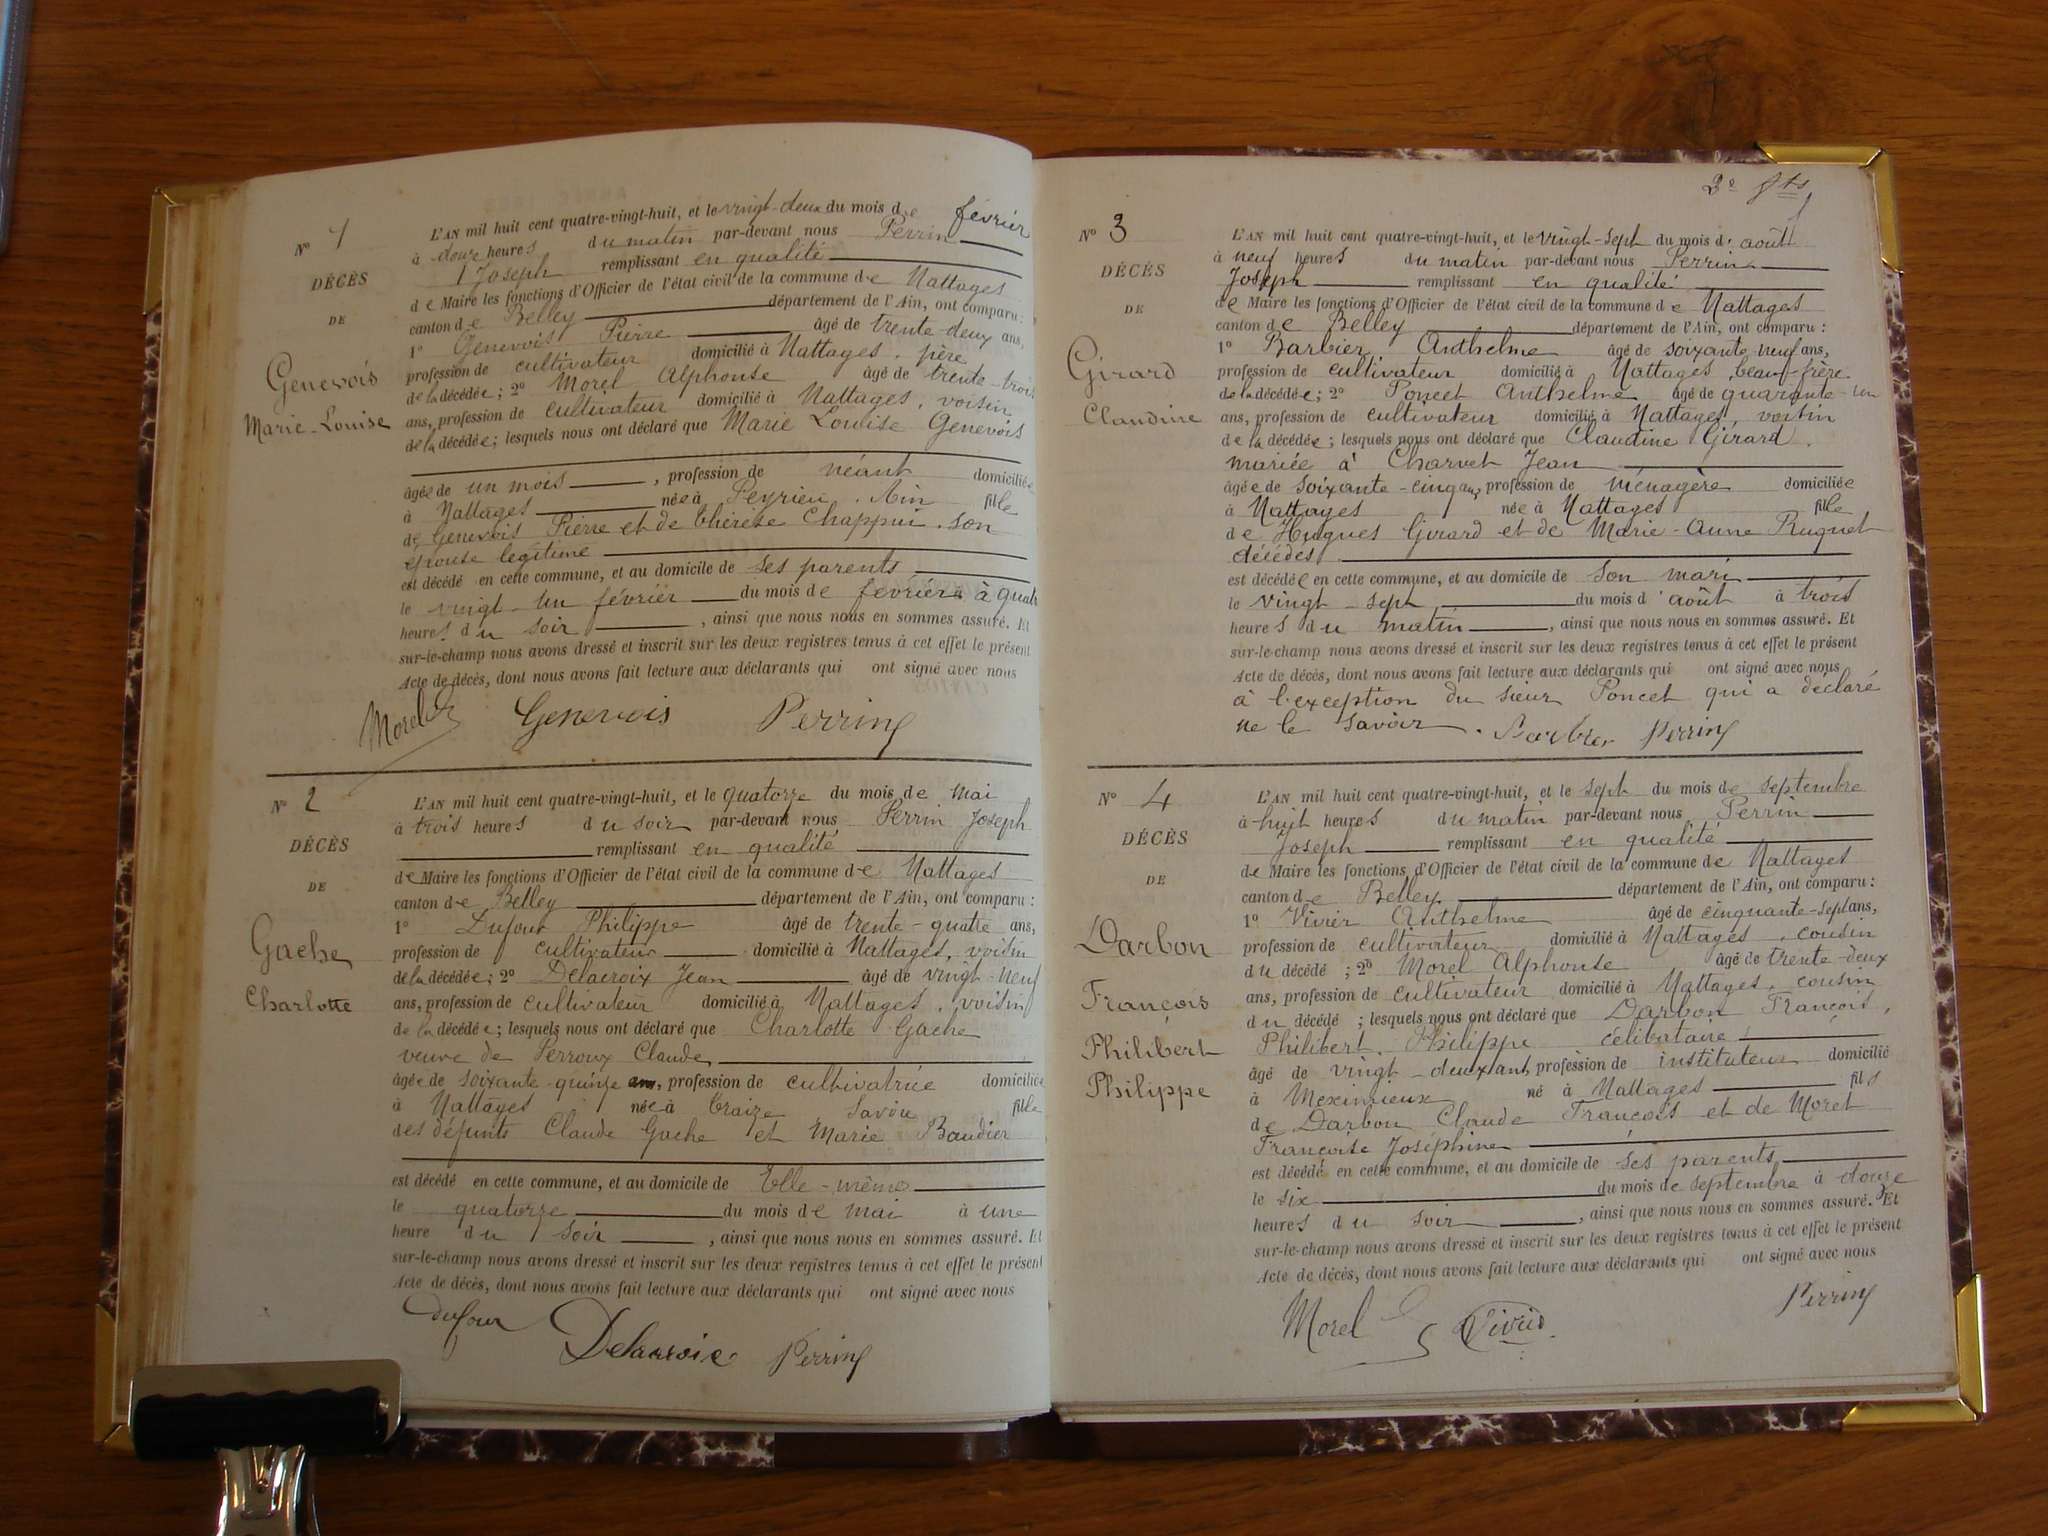 N° 1
DÉCÈS
DE
Genevois
Marie-Louise
L'AN mil huit cent quatre-vingt-huit, et le vingt-deux du mois de février
à douze heures du matin par-devant nous Perrin
Joseph remplissant en qualité
de Maire les fonctions d'Officier de l'état civil de la commune de Nattages
canton de Belley département de l'Ain, ont comparu :
1° Genevois Pierre âgé de trente-deux ans,
profession de cultivateur domicilié à Nattages, père
de la décédée; 2° Morel Alphonse âgé de trente-trois
ans, profession de cultivateur domicilié à Nattages, voisin
de la décédée; lesquels nous ont déclaré que Marie Louise Genevois
âgée de un mois, profession de néant domiciliée
à Nattages née à Peyrieu, Ain fille
de Genevois Pierre et de Thérèse Chappui, son
épouse légitime
est décédé en cette commune, et au domicile de ses parents
le vingt-un février du mois de février à quatr
heures du soir, ainsi que nous nous en sommes assuré. Et
sur-le-champ nous avons dressé et inscrit sur les deux registres tenus à cet effet le présent
Acte de décès, dont nous avons fait lecture aux déclarants qui ont signé avec nous
Morel Genevois Perrin
N° 2
DÉCÈS
DE
Gache
Charlotte
L'AN mil huit cent quatre-vingt-huit, et le quatorze du mois de mai
à trois heures du soir par-devant nous Perrin Joseph
remplissant en qualité
de Maire les fonctions d'Officier de l'état civil de la commune de Nattages
canton de Belley département de l'Ain, ont comparu :
1° Dufour Philippe âgé de trente-quatre ans,
profession de cultivateur domicilié à Nattages, voisin
de la décédée; 2° Delacroix Jean âgé de vingt-neuf
ans, profession de cultivateur domicilié à Nattages, voisin
de la décédée; lesquels nous ont déclaré que Charlotte Gache
veuve de Perroux Claude
âgée de soixante-quinze ans, profession de cultivatrice domiciliée
à Nattages née à Traize, Savoie fille
des défunts Claude Gache et Marie Baudier
est décédé en cette commune, et au domicile de Elle-même
le quatorze du mois de mai à une
heure du soir, ainsi que nous nous en sommes assuré. Et
sur-le-champ nous avons dressé et inscrit sur les deux registres tenus à cet effet le présent
Acte de décès, dont nous avons fait lecture aux déclarants qui ont signé avec nous
Dufour Delacroix Perrin
N° 3
DÉCÈS
DE
Girard
Claudine
L'AN mil huit cent quatre-vingt-huit, et le vingt-sept du mois d'août
à neuf heures du matin par-devant nous Perrin
Joseph remplissant en qualité
de Maire les fonctions d'Officier de l'état civil de la commune de Nattages
canton de Belley département de l'Ain, ont comparu :
1° Barbier Anthelme âgé de soixante-neuf ans,
profession de cultivateur domicilié à Nattages, beau-frère
de la décédée; 2° Poncet Anthelme âgé de quarante-un
ans, profession de cultivateur domicilié à Nattages, voisin
de la décédée; lesquels nous ont déclaré que Claudine Girard,
mariée à Charvet Jean
âgée de soixante-cinq ans, profession de ménagère domiciliée
à Nattages née à Nattages fille
de Hugues Girard et de Marie-Anne Ruguet
décédés
est décédée en cette commune, et au domicile de son mari
le vingt-sept du mois d'août à trois
heures du matin, ainsi que nous nous en sommes assuré. Et
sur-le-champ nous avons dressé et inscrit sur les deux registres tenus à cet effet le présent
Acte de décès, dont nous avons fait lecture aux déclarants qui ont signé avec nous
à l'exception du sieur Poncet qui a déclaré
ne le savoir. Perrin
N° 4
DÉCÈS
DE
Darbon
François
Philibert
Philippe
L'AN mil huit cent quatre-vingt-huit, et le sept du mois de septembre
à huit heures du matin par-devant nous Perrin
Joseph remplissant en qualité
de Maire les fonctions d'Officier de l'état civil de la commune de Nattages
canton de Belley département de l'Ain, ont comparu :
1° Vivier Anthelme âgé de cinquante-sept ans,
profession de cultivateur domicilié à Nattages, cousin
du décédé ; 2° Morel Alphonse âgé de trente-deux
ans, profession de cultivateur domicilié à Nattages, cousin
du décédé ; lesquels nous ont déclaré que Darbon François,
Philibert, Philippe célibataire
âgé de vingt-deux ans, profession de instituteur domicilié
à Meximieux né à Nattages fils
de Darbon Claude François et de Morel
Françoise Joséphine
est décédé en cette commune, et au domicile de ses parents
le six du mois de septembre à douze
heures du soir, ainsi que nous nous en sommes assuré. Et
sur-le-champ nous avons dressé et inscrit sur les deux registres tenus à cet effet le présent
Acte de décès, dont nous avons fait lecture aux déclarants qui ont signé avec nous
Morel Vivier Perrin